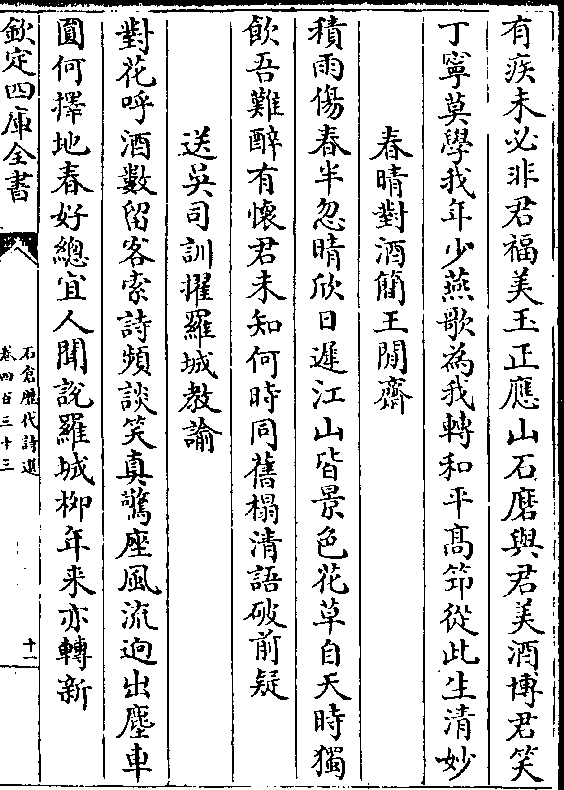 有疾未必非君福美玉正應山石磨與君美酒博君笑
丁寧莫學我年少燕歌為我轉和平髙節從此生清妙
春晴對酒簡王閒齋
積雨傷春半忽晴欣日遲江山皆景色花草自天時獨
飲吾難醉有懷君未知何時同舊榻清語破前疑
送吳司訓擢羅城教諭
對花呼酒數留客索詩頻談笑真驚座風流逈出塵車
圓何擇地春好總宜人聞說羅城柳年来亦轉新
欽定四庫全書
石倉歷代詩選
卷四百三十三
十一